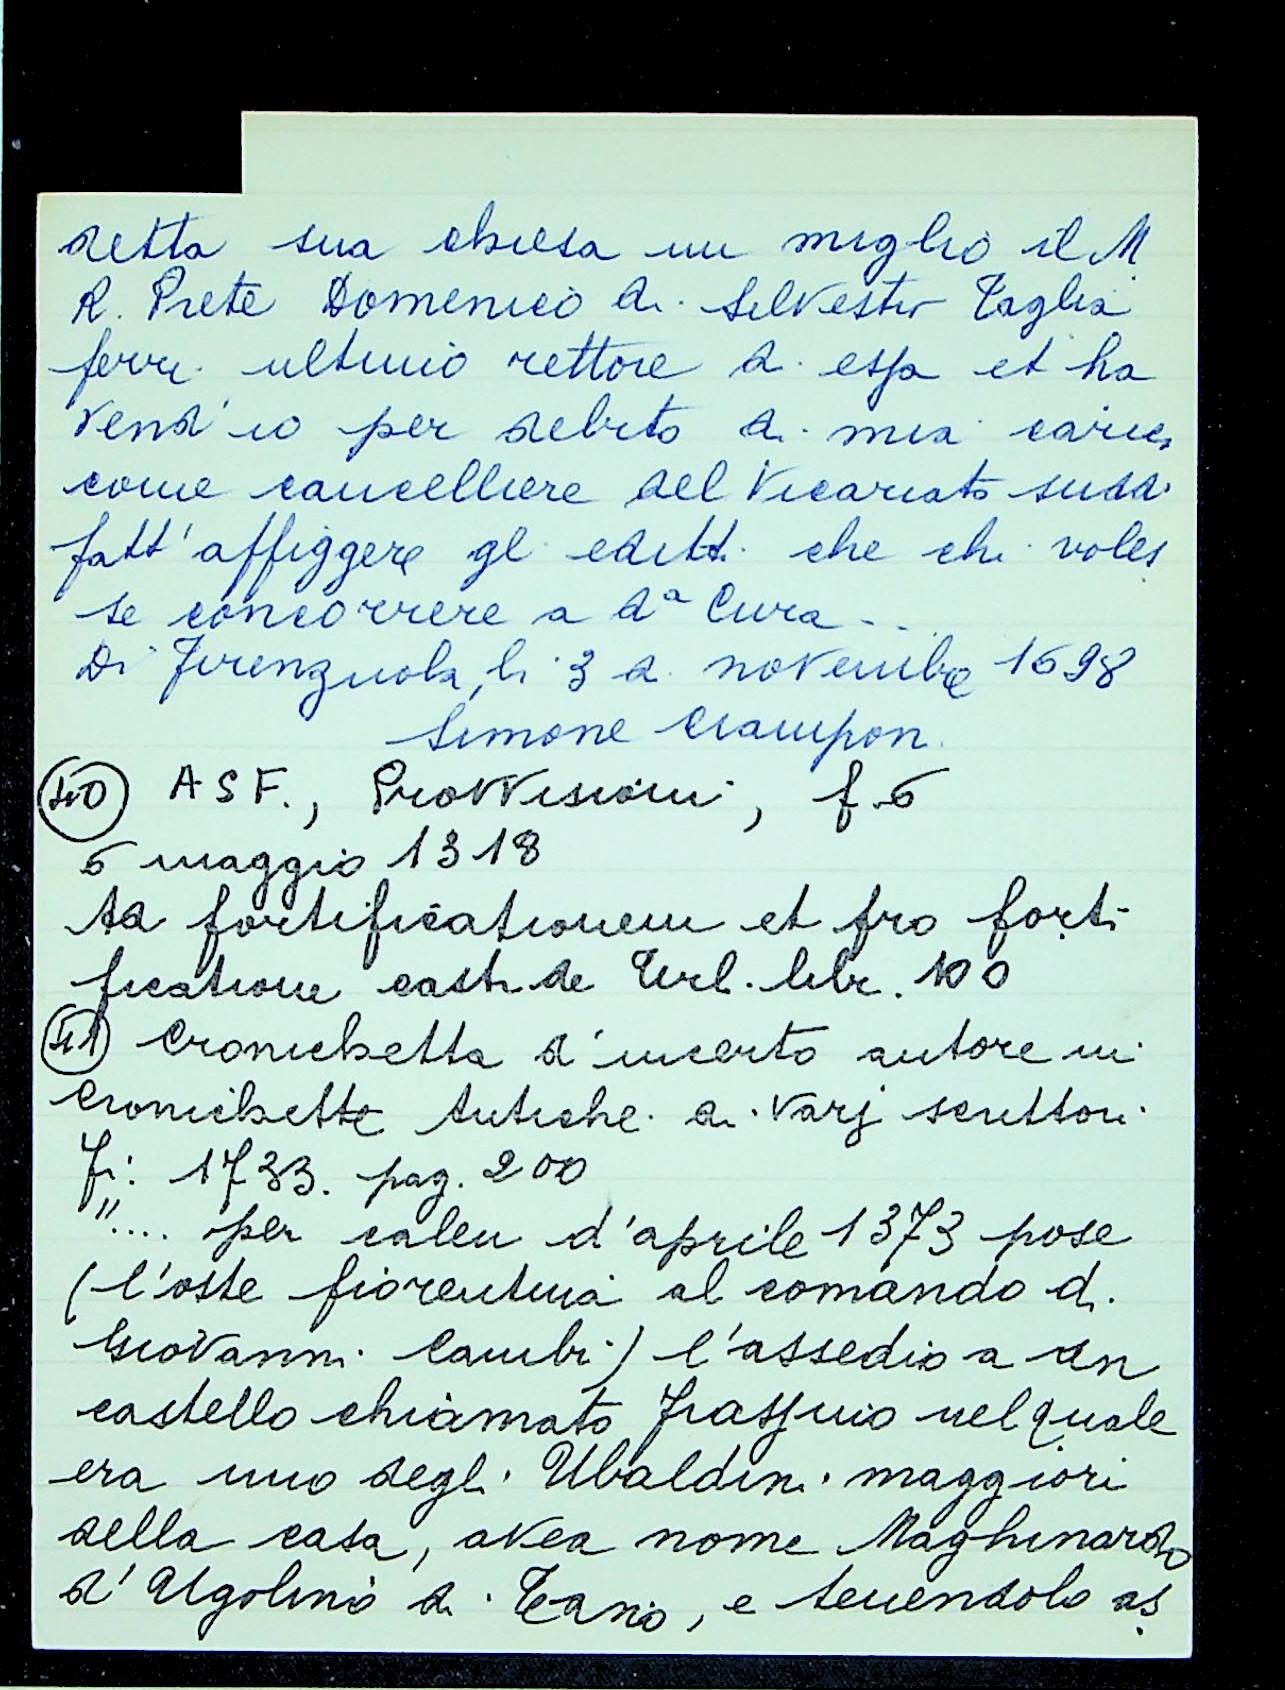 detta sua chiesa un miglio il M.
R. Prete Domenico di Silvestro Taglia
ferri ultimo rettore di essa et ha
vend' io per debito di mia caric,
come cancelliere del Vicariato sudd.
fatt' affiggere gl' editti che chi voles
se concorrere a dª Cura...
Di Firenzuola, li 3 di novembre 1698
Simone Ciamponi
40 A S F., Provvisioni, f. 6
6 maggio 1318
Ad fortificationem et pro forti
ficatione castri de Tirl. libr. 100
41 Cronichetta d'incerto autore in
Cronichette Antiche di varj scrittori
Fi: 1733. pag. 200
".... per calen d'aprile 1373 pose
(l'oste fiorentina al comando di
Giovanni Cambi) l'assedio a un
castello chiamato Frassino nel quale
era uno degli Ubaldini maggiori
della casa, avea nome Maghinardo
d' Ugolino di Tano, e tenendolo as